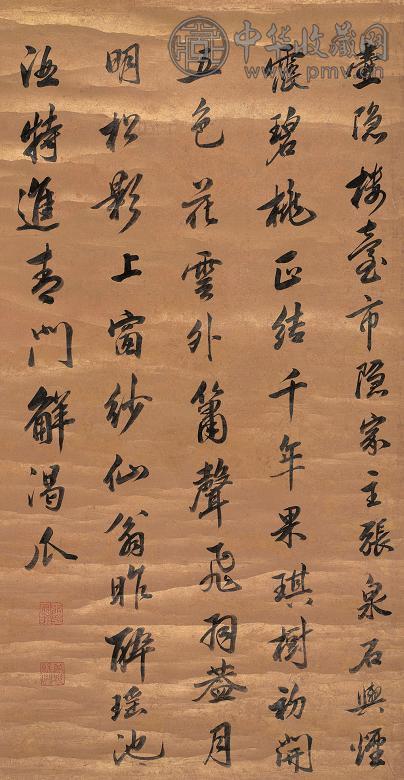 中华收藏网
www.pmv.cn
壺隐楼臺市隐家主張泉石與煙
霞碧桃正结千年果琪樹初開
五色花雲外簫聲飛羽蓋月
明松影上窗紗仙翁昨醉瑤池
酒特進青門解渴瓜